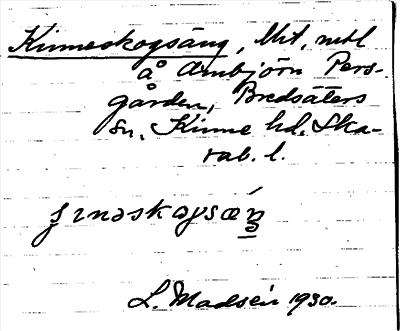 Kinneskogsäng, Urt, mtl
å Arnbjörn Pers-
gården, Bredsäters
sn, Kinne hd. Ska-
rab. l.
L. Madsén 1930.